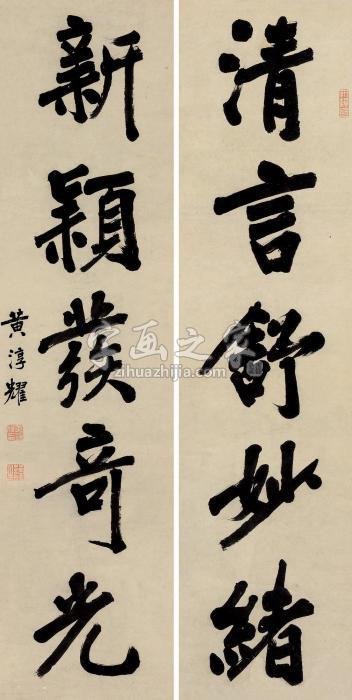 清言舒妙緒
新穎發奇光
黄淳耀
字画之家
zihuazhijia.com